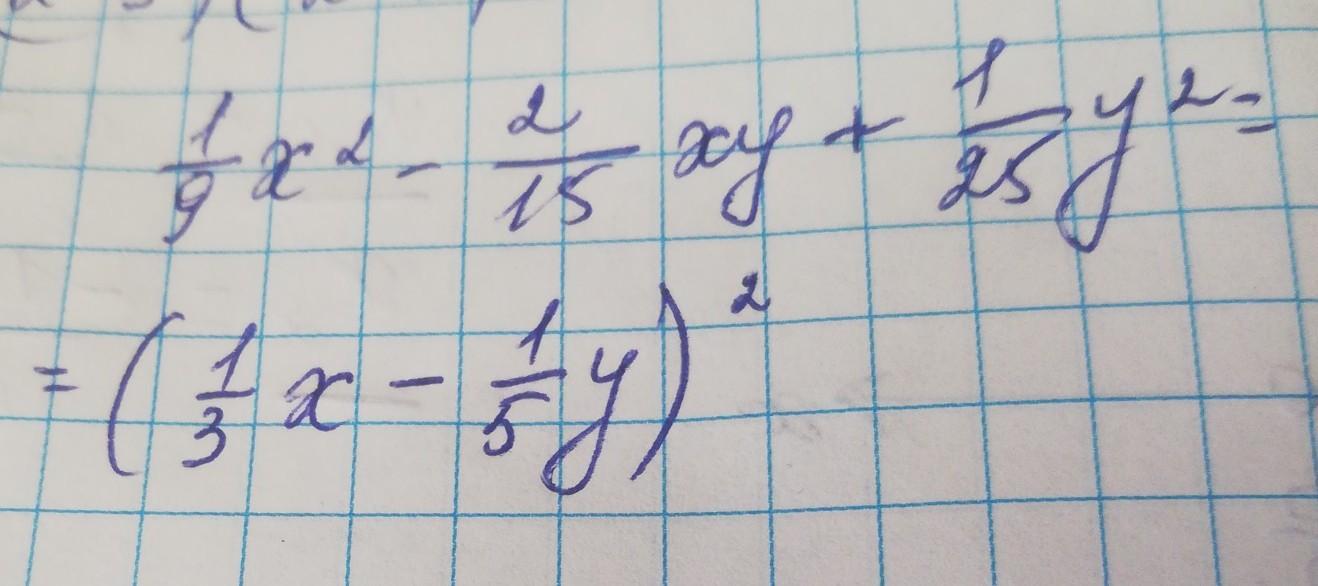 1/9 x² - 2/15 xy + 1/25 y² =
= (1/3 x - 1/5 y)²